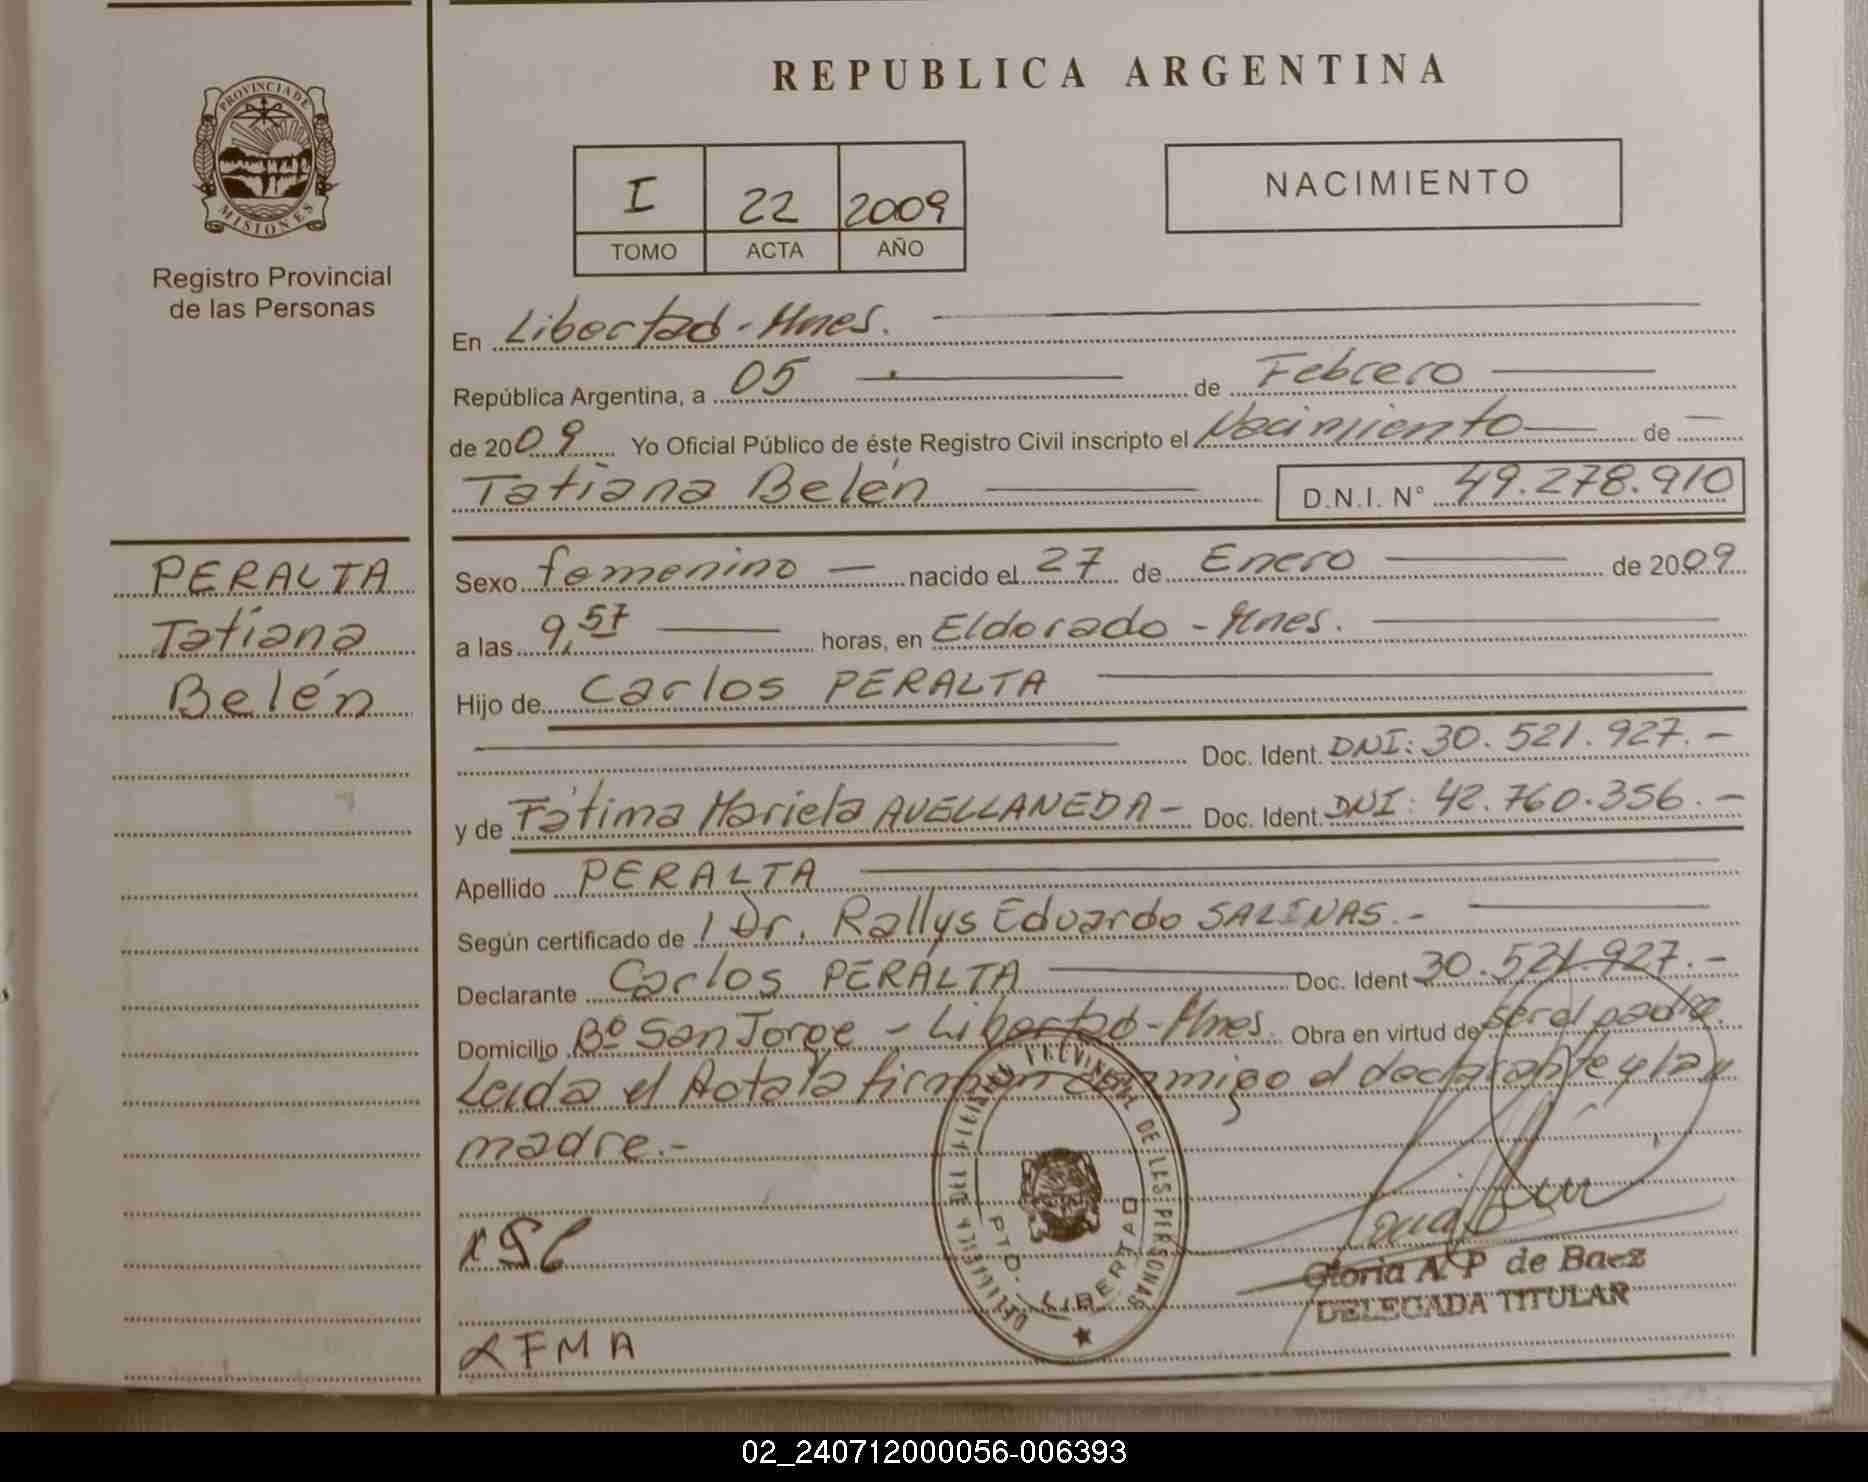 REPUBLICA ARGENTINA
PROVINCIA DE
MISIONES
Registro Provincial
de las Personas
I 22 2009
TOMO ACTA AÑO
NACIMIENTO
En Libertad - Mnes.
República Argentina, a 05 de Febrero
de 2009 Yo Oficial Público de éste Registro Civil inscripto el Nacimiento de
Tatiana Belén D.N.I. N° 49.278.910
PERALTA
Tatiana
Belén
Sexo femenino nacido el 27 de Enero de 2009
a las 9,57 horas, en Eldorado - Mnes.
Hijo de Carlos PERALTA
Doc. Ident. DNI: 30.521.927.-
y de Fátima Mariela AVELLANEDA - Doc. Ident. DNI: 42.760.356.-
Apellido PERALTA
Según certificado de / Dr. Rallys Eduardo SALINAS.-
Declarante Carlos PERALTA Doc. Ident 30.521.927.-
Domicilio Bº San Jorge - Libertad - Mnes. Obra en virtud de ser el padre.
Leida el Acta la firman conmigo el declarante y la
madre.-
PROVINCIAL DE LAS PERSONAS
PTO. LIBERTAD
Gloria A. P de Baez
DELEGADA TITULAR
FMA
02_240712000056-006393